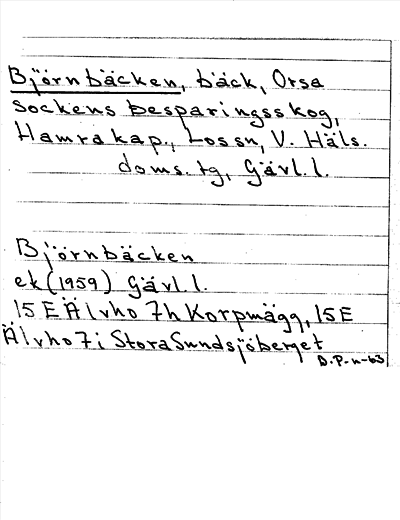 Björnbäcken, bäck, Orsa
sockens besparingsskog,
Hamra kap., Lossn, V. Häls.
doms.tg, Gävl.l.
Björnbäcken
ek (1959) Gävl.l.
15 E Älvho 7h Korpmägg, 15E
Älvho 7i Stora Sundsjöberget
B.P-n-63